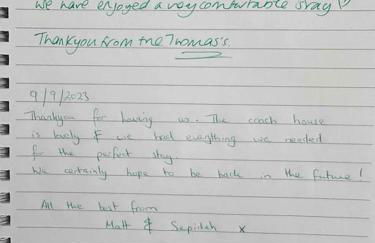 We have enjoyed a very comfortable stay
Thankyou from the Thomas's.
9/9/2023
Thankyou for having us. The coach house
is lovely & we had everything we needed
for the perfect stay.
We certainly hope to be back in the future!
All the best from
Matt & Sepideh x